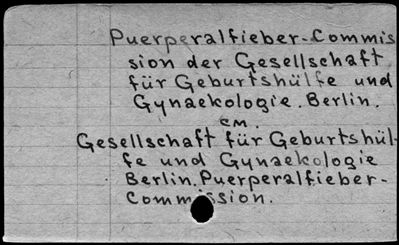 Puerperalfieber-Commis
sion der Gesellschaft
für Geburtshülfe und
Gynaekologie. Berlin.
cm.
Gesellschaft für Geburtshül-
fe und Gynaekologie
Berlin. Puerperalfieber-
Commission.